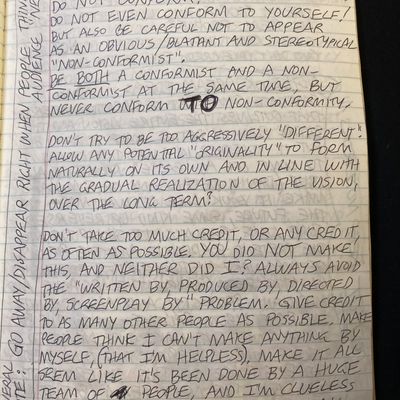 DO NOT CONFORM.
DO NOT EVEN CONFORM TO YOURSELF!
BUT ALSO BE CAREFUL NOT TO APPEAR
AS AN OBVIOUS/BLATANT AND STEREOTYPICAL
"NON-CONFORMIST".
BE BOTH A CONFORMIST AND A NON-
CONFORMIST AT THE SAME TIME, BUT
NEVER CONFORM TO NON-CONFORMITY.
DON'T TRY TO BE TOO AGGRESSIVELY "DIFFERENT!
ALLOW ANY POTENTIAL "ORIGINALITY" TO FORM
NATURALLY ON ITS OWN AND IN LINE WITH
THE GRADUAL REALIZATION OF THE VISION,
OVER THE LONG TERM?
DON'T TAKE TOO MUCH CREDIT, OR ANY CREDIT,
AS OFTEN AS POSSIBLE. YOU DID NOT MAKE
THIS, AND NEITHER DID I? ALWAYS AVOID
THE "WRITTEN BY, PRODUCED BY, DIRECTED
BY, SCREENPLAY BY" PROBLEM. GIVE CREDIT
TO AS MANY OTHER PEOPLE AS POSSIBLE. MAKE
PEOPLE THINK I CAN'T MAKE ANYTHING BY
MYSELF, (THAT I'M HELPLESS), MAKE IT ALL
SEEM LIKE IT'S BEEN DONE BY A HUGE
TEAM OF PEOPLE, AND I'M CLUELESS
GO AWAY/DISAPPEAR RIGHT WHEN PEOPLE THIN
AUDIENCE